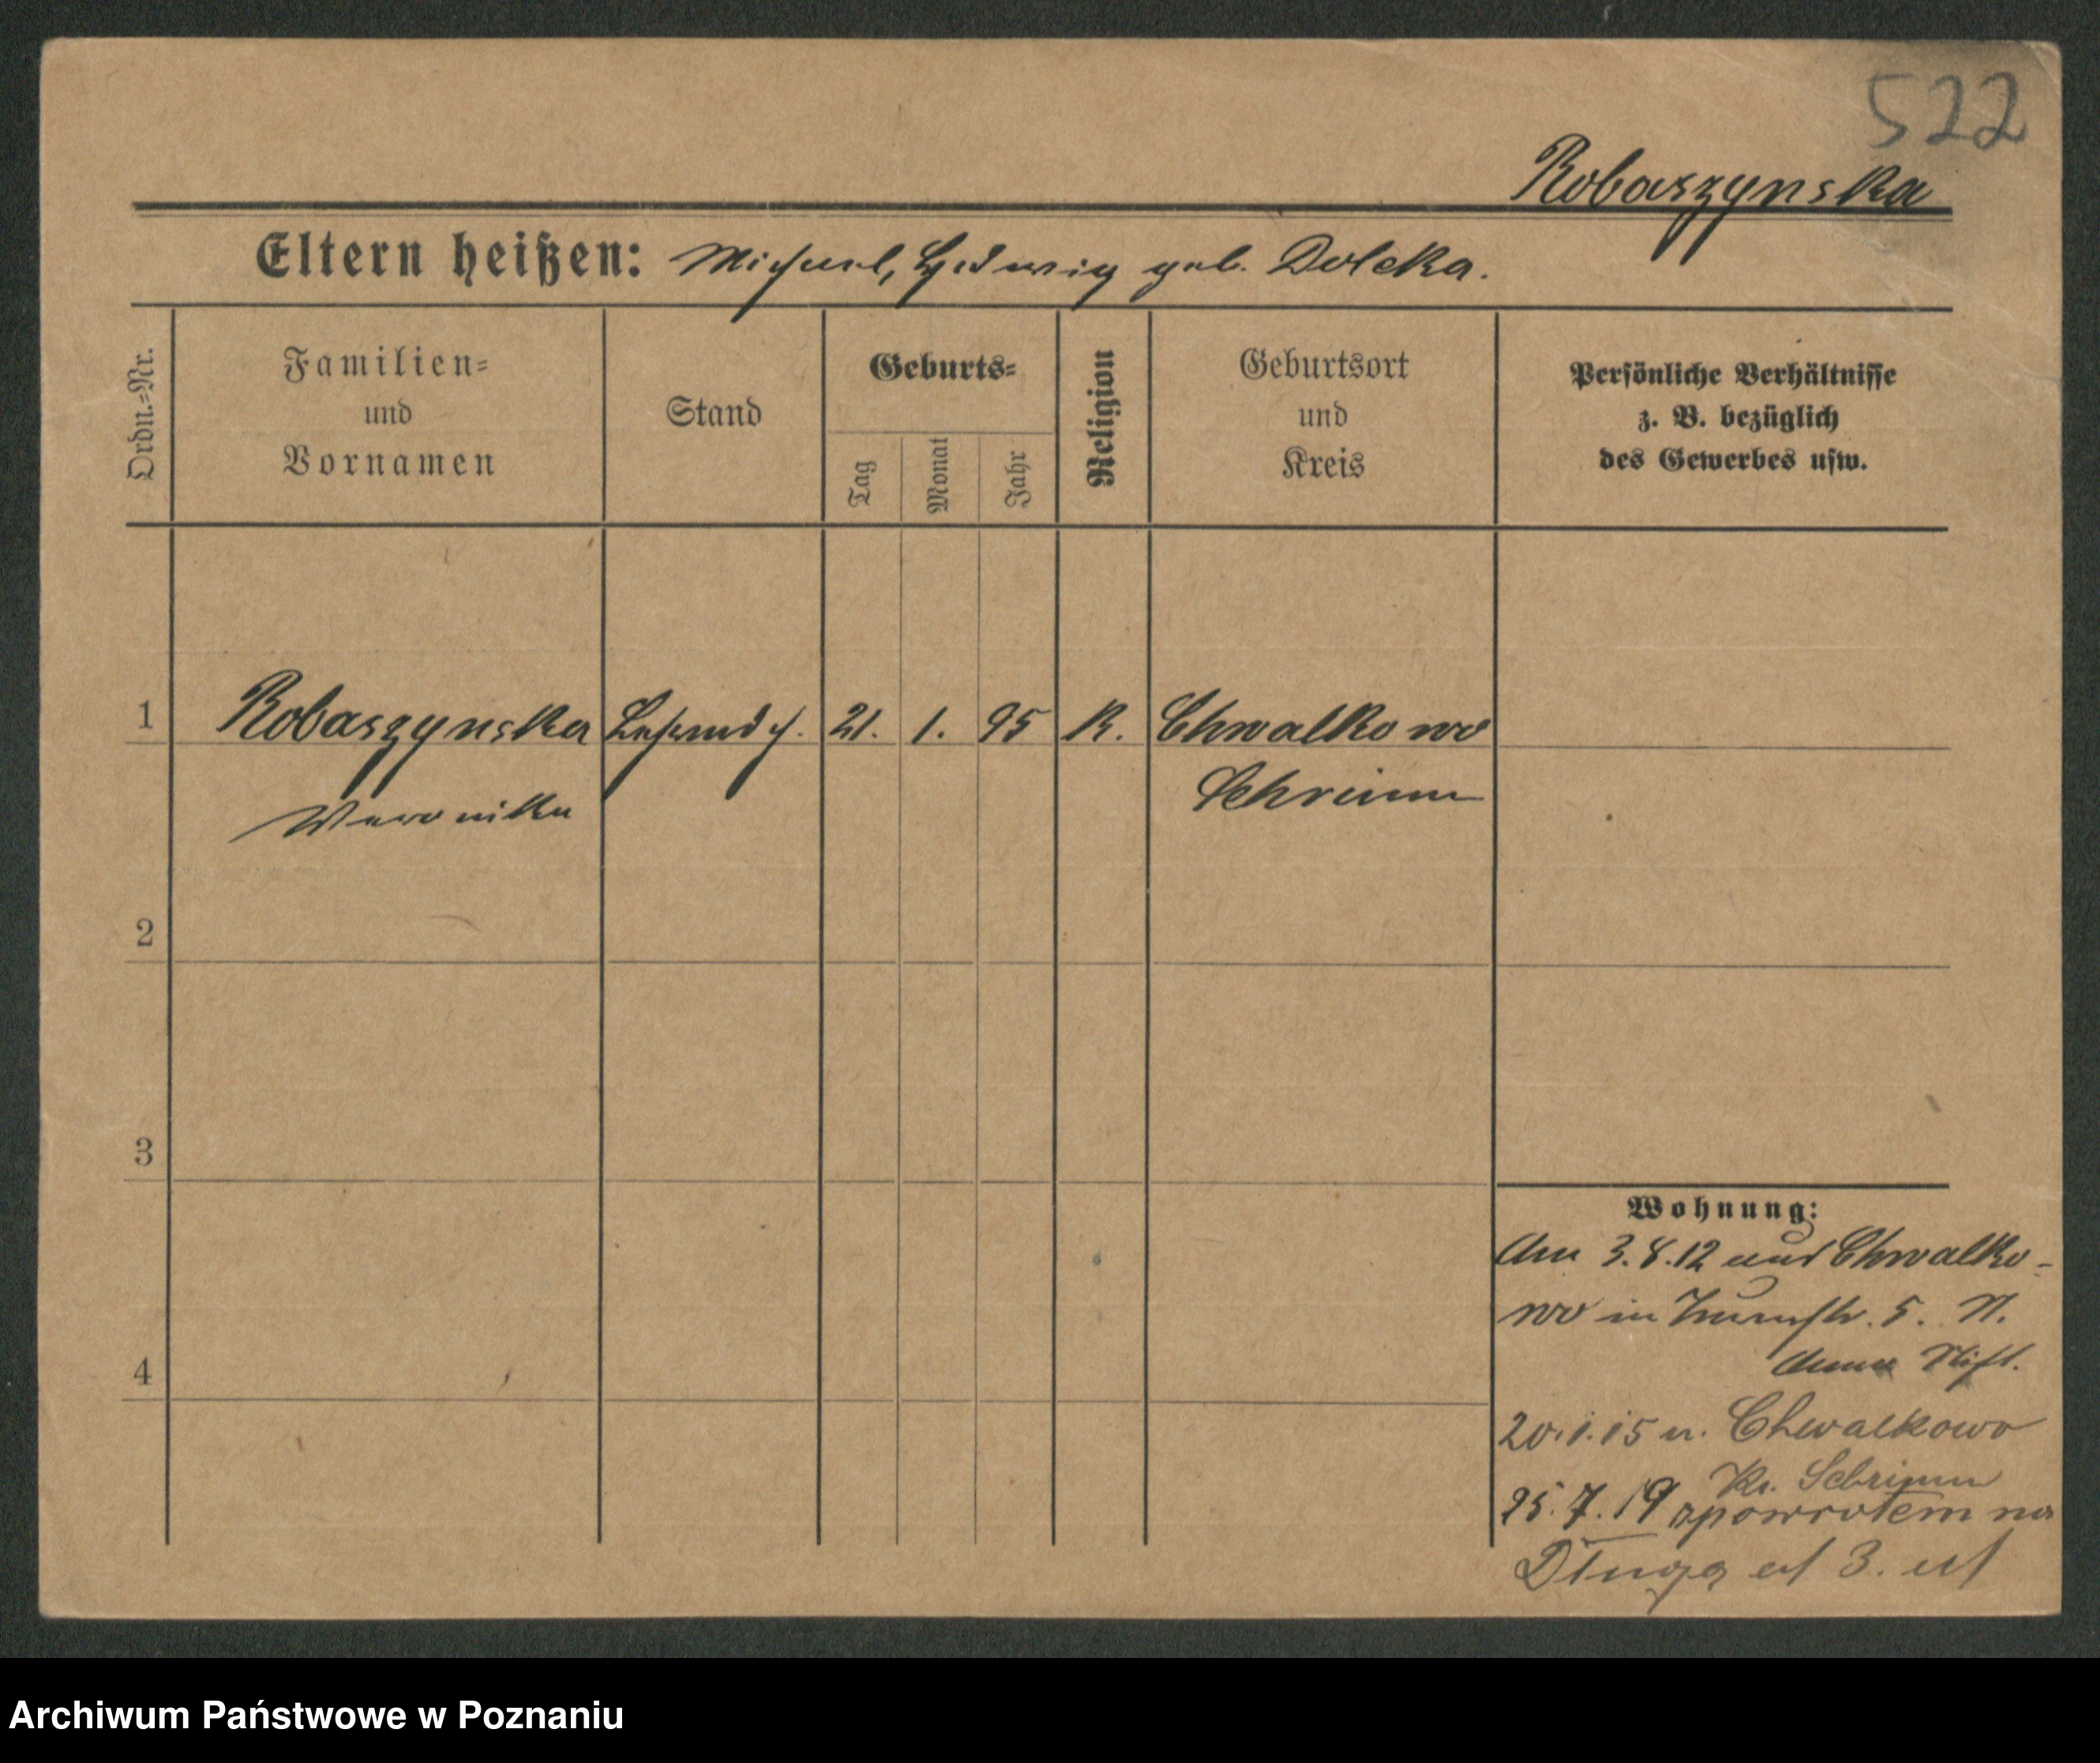 522
Robaszynska
Eltern heißen: Michael, Hedwig geb. Dolcka.
Ordn.-Nr.
Familien-
und
Vornamen
Stand
Geburts-
Tag
Monat
Jahr
Religion
Geburtsort
und
Kreis
Persönliche Verhältnisse
z. B. bezüglich
des Gewerbes usw.
1 Robaszynska 21. 1. 95 K. Chwalkowo
Weronika Schrimm
2
3
4
Wohnung:
Am 3.8.12 aus Chwalko-
wo in 5. N.
20.1.15 n. Chwalkowo
Kr. Schrimm
25.7.19 zpowrotem na
Długa 3.
Archiwum Państwowe w Poznaniu